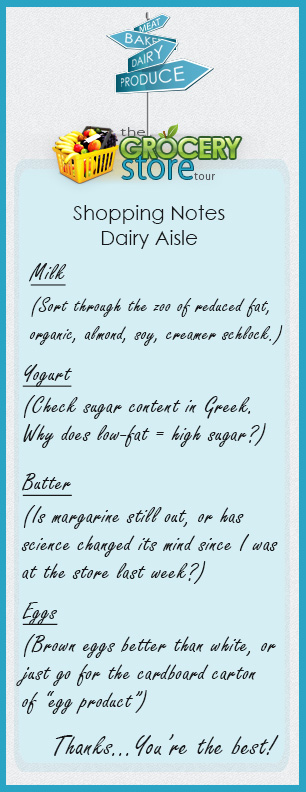 MEAT
BAKERY
DAIRY
PRODUCE
the
GROCERY
store tour
Shopping Notes
Dairy Aisle
Milk
(Sort through the zoo of reduced fat,
organic, almond, soy, creamer schlock.)
Yogurt
(Check sugar content in Greek.
Why does low-fat = high sugar?)
Butter
(Is margarine still out, or has
science changed its mind since I was
at the store last week?)
Eggs
(Brown eggs better than white, or
just go for the cardboard carton
of “egg product”)
Thanks...You’re the best!